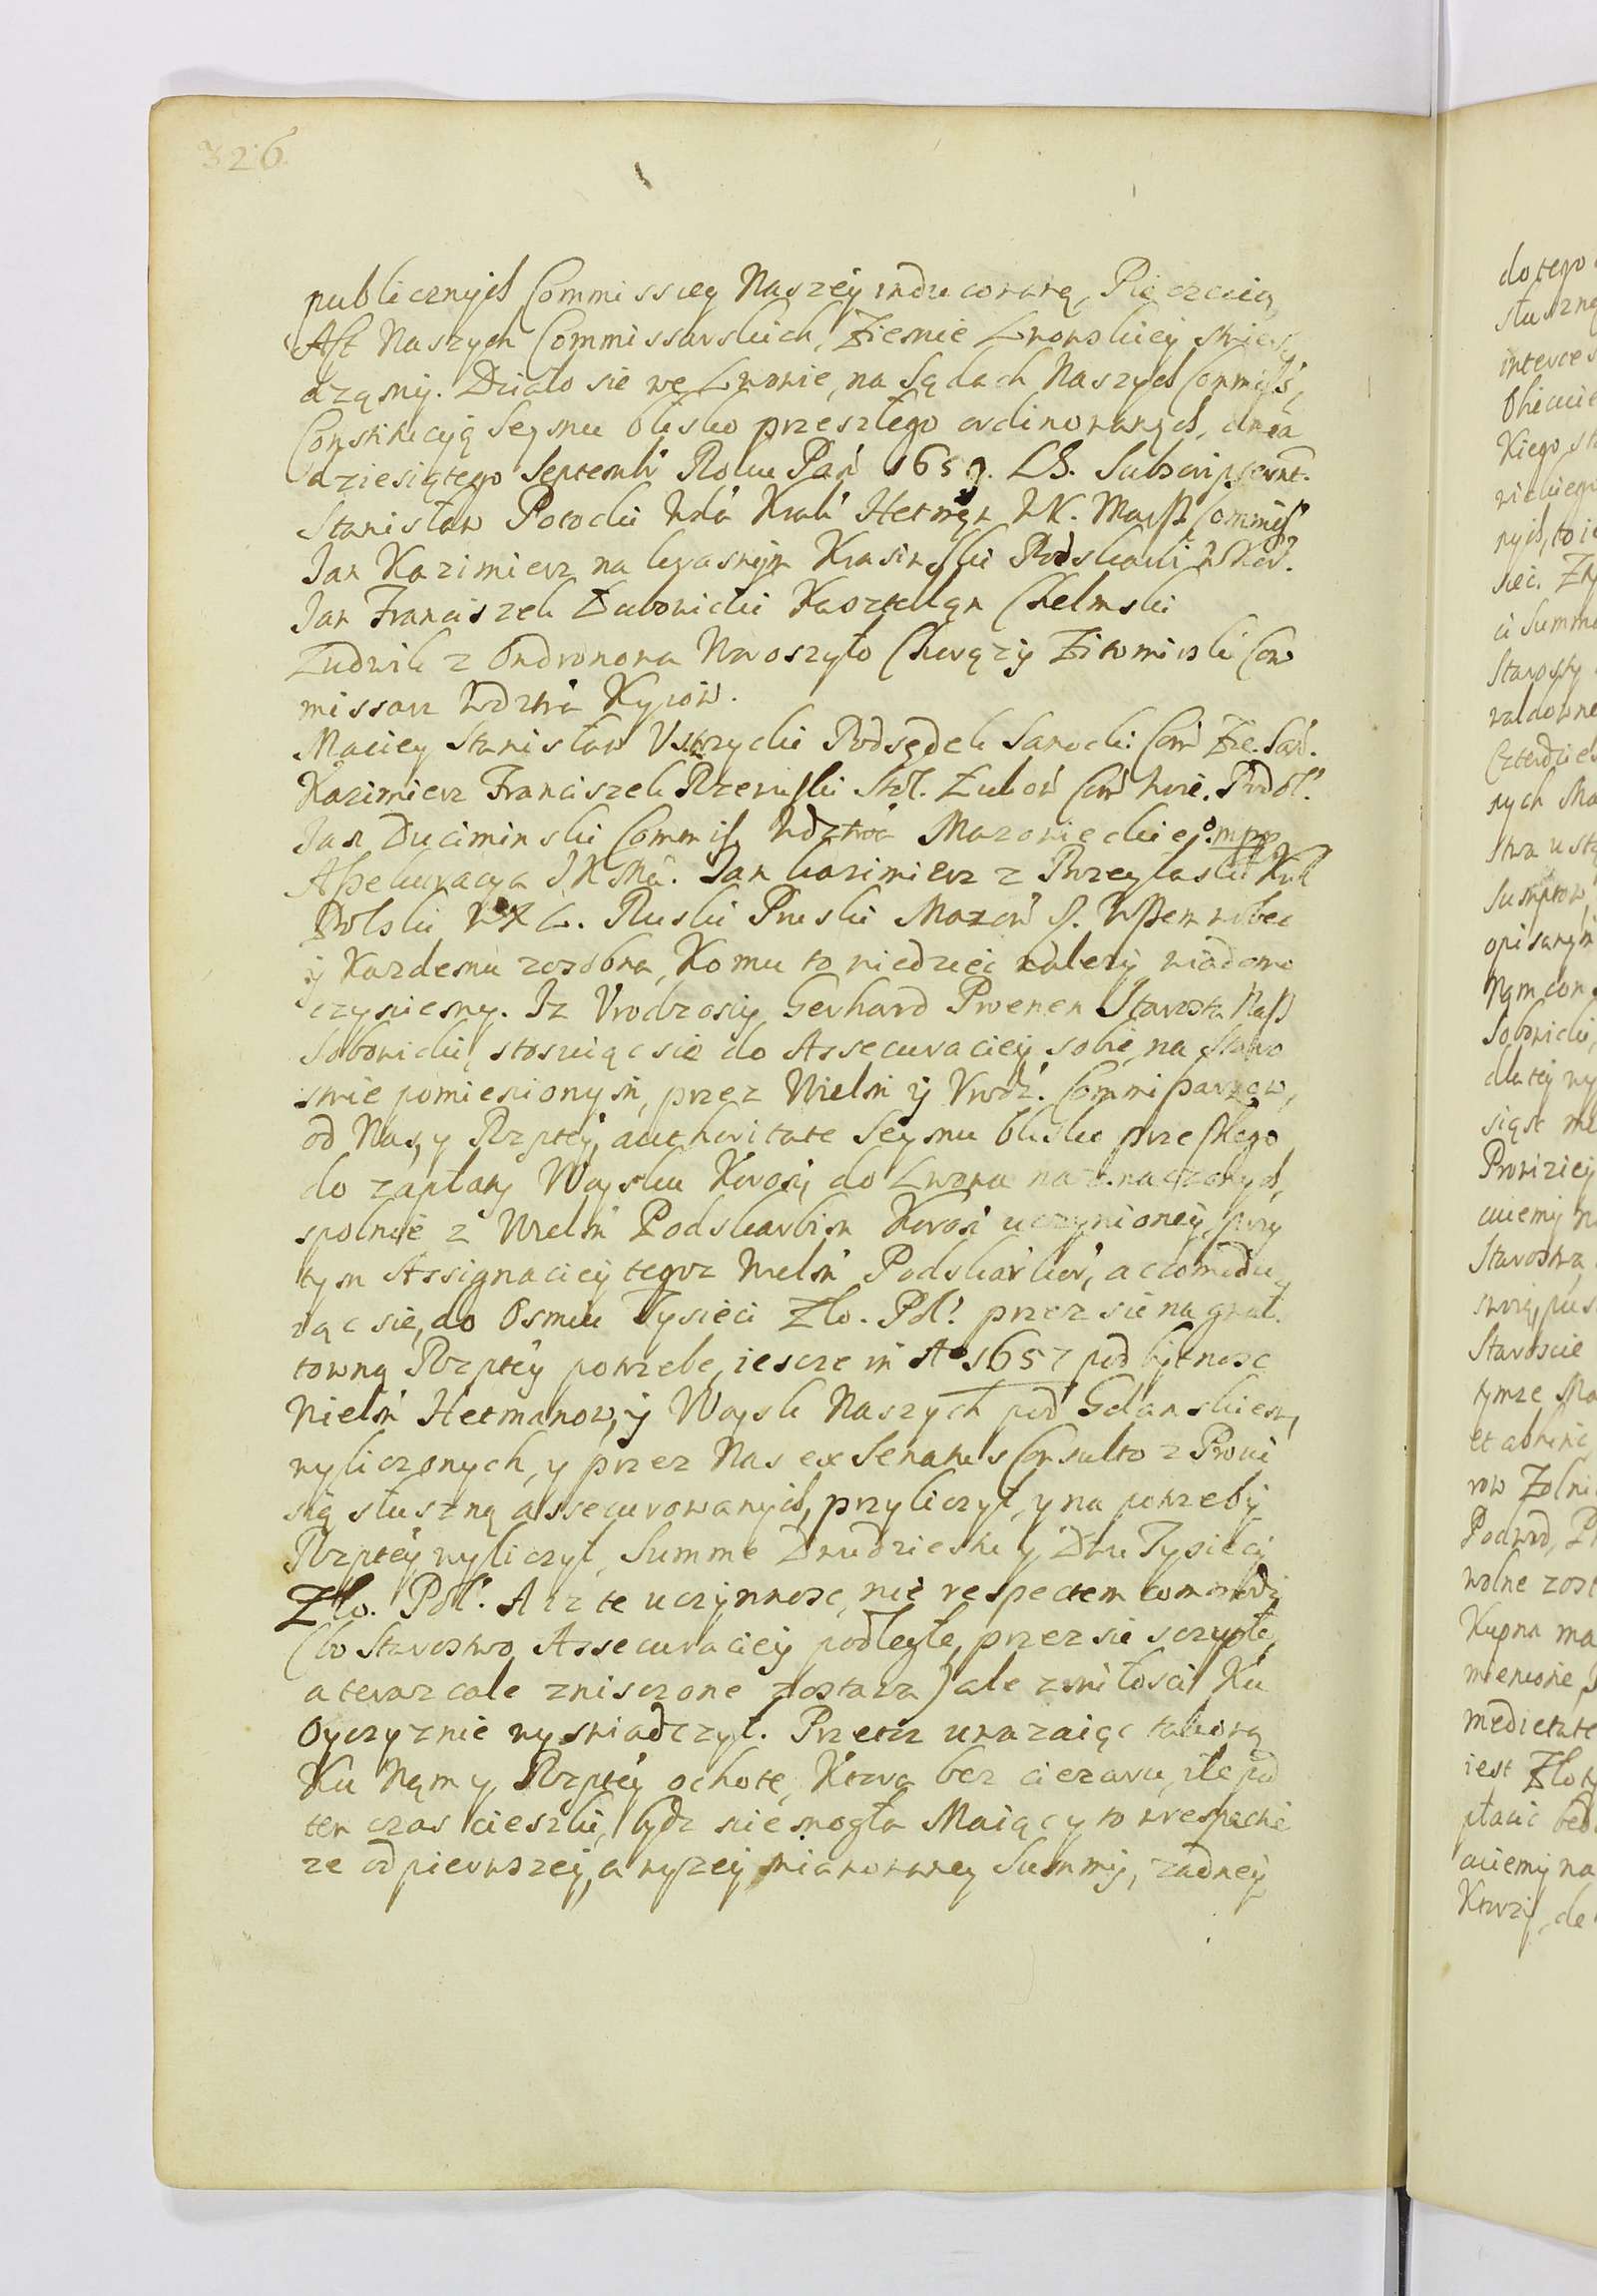 326
publicznych Commissiey Naszey inducowaną, Pieczecią
Ast Naszych Commissarskich, Ziemie Lwowskiey stwier
dząmy. Działo sie we Lwowie, na Sądach Naszych Commiss,
Constitucyą Seymu blisko przeszłego ordinowanych, dnia
dziesiątego Septemb Roku Pań 1659. LS. Subscripserunt.
Stanisław Potocki Wda Krak Hetman WK. Marß Commiß
Jan Kazimierz na Krasnym Krasinski Podskarbi W Kor.
Jan Franciszek Lubowicki Kasztellan Chelmski
Ludwik z Ondronowa Woroszyło Chorąży Zitomirski Com
missarz Wdztwa Kyiow.
Maciey Stanisław Ustrzycki Podsędek Sanocki Com Zie. San.
Kazimierz Franciszek Rzewuski Stol. Lubow Com Woie. Podol.
Jan Duciminski Commiss Wdztwa Mazowieckieo mpp
Aßekuracya JKMci. Jan Kazimierz z Bozey laski Krol
Polski WXL. Ruski Pruski Mazow &. Wßem wobec
y Kazdemu zosobna, Komu to wiedziec należy wiadomo
czyniemy. Iz Vrodzony Gerhard Proenen Starosta Naß
Sobowicki, stosuiąc sie do Assecuraciey sobie na Staro
stwie pomienionym, przez Wielm y Vrodz. Commißarzow,
od Nas, y Rzptey, authoritate Seymu blisko przeßlego
do zapłaty Woysku Koron do Lwowa naznaczonych,
spolnie z Wielm Podskarbim Koron uczynioney, przy
tym Assignaciey tegoz Wielm Podskarbie, accomodu
iąc sie, do Osmiu Tysięci Zło. Pol. przez sie na gwał
towną Rzptey potrzebe, iescze in Ao 1657 pod bytnosc
Wielm Hetmanow, y Woysk Naszych pod Gdanskiem,
wyliczonych, y przez Nas ex Senatus Consulto z Provi
sią słuszną assecurowanych, przyliczył, y na potrzeby
Rzptey wyliczył, Summe Dwudziestu y Dwu Tysięcy
Zło. Pol. A iz te uczynnosc, nie respectem commodi
(bo Starostwo Assecuraciey podległe, przez sie sczupłe,
a teraz cale zniszone zostawa) ale z miłosci Ku
Oyczyznie wyswiadczył. Przetoz uwazaiąc takową
Ku Nam y Rzptey ochote, Ktora bez cięzaru, ile pod
ten czas cieszki, bydz niemogła Maiąc y to w respectie
ze od pierwszey, a wyzey mianowaney Summy, zadney